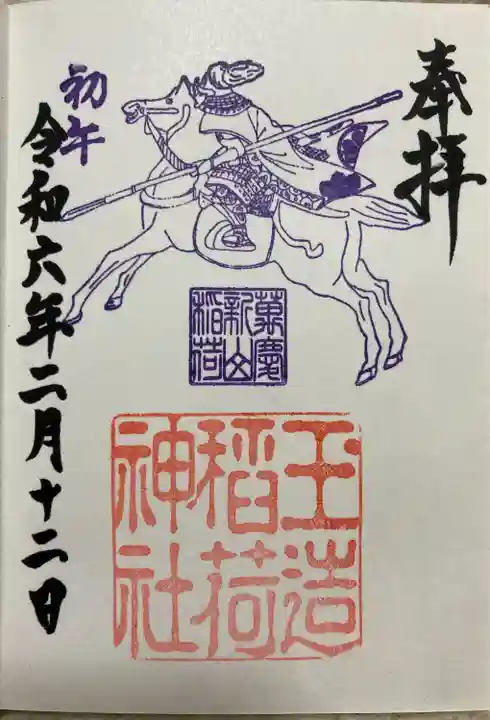 奉拝
初午
萬慶
新山
稲荷
玉造
稲荷
神社
令和六年二月十二日